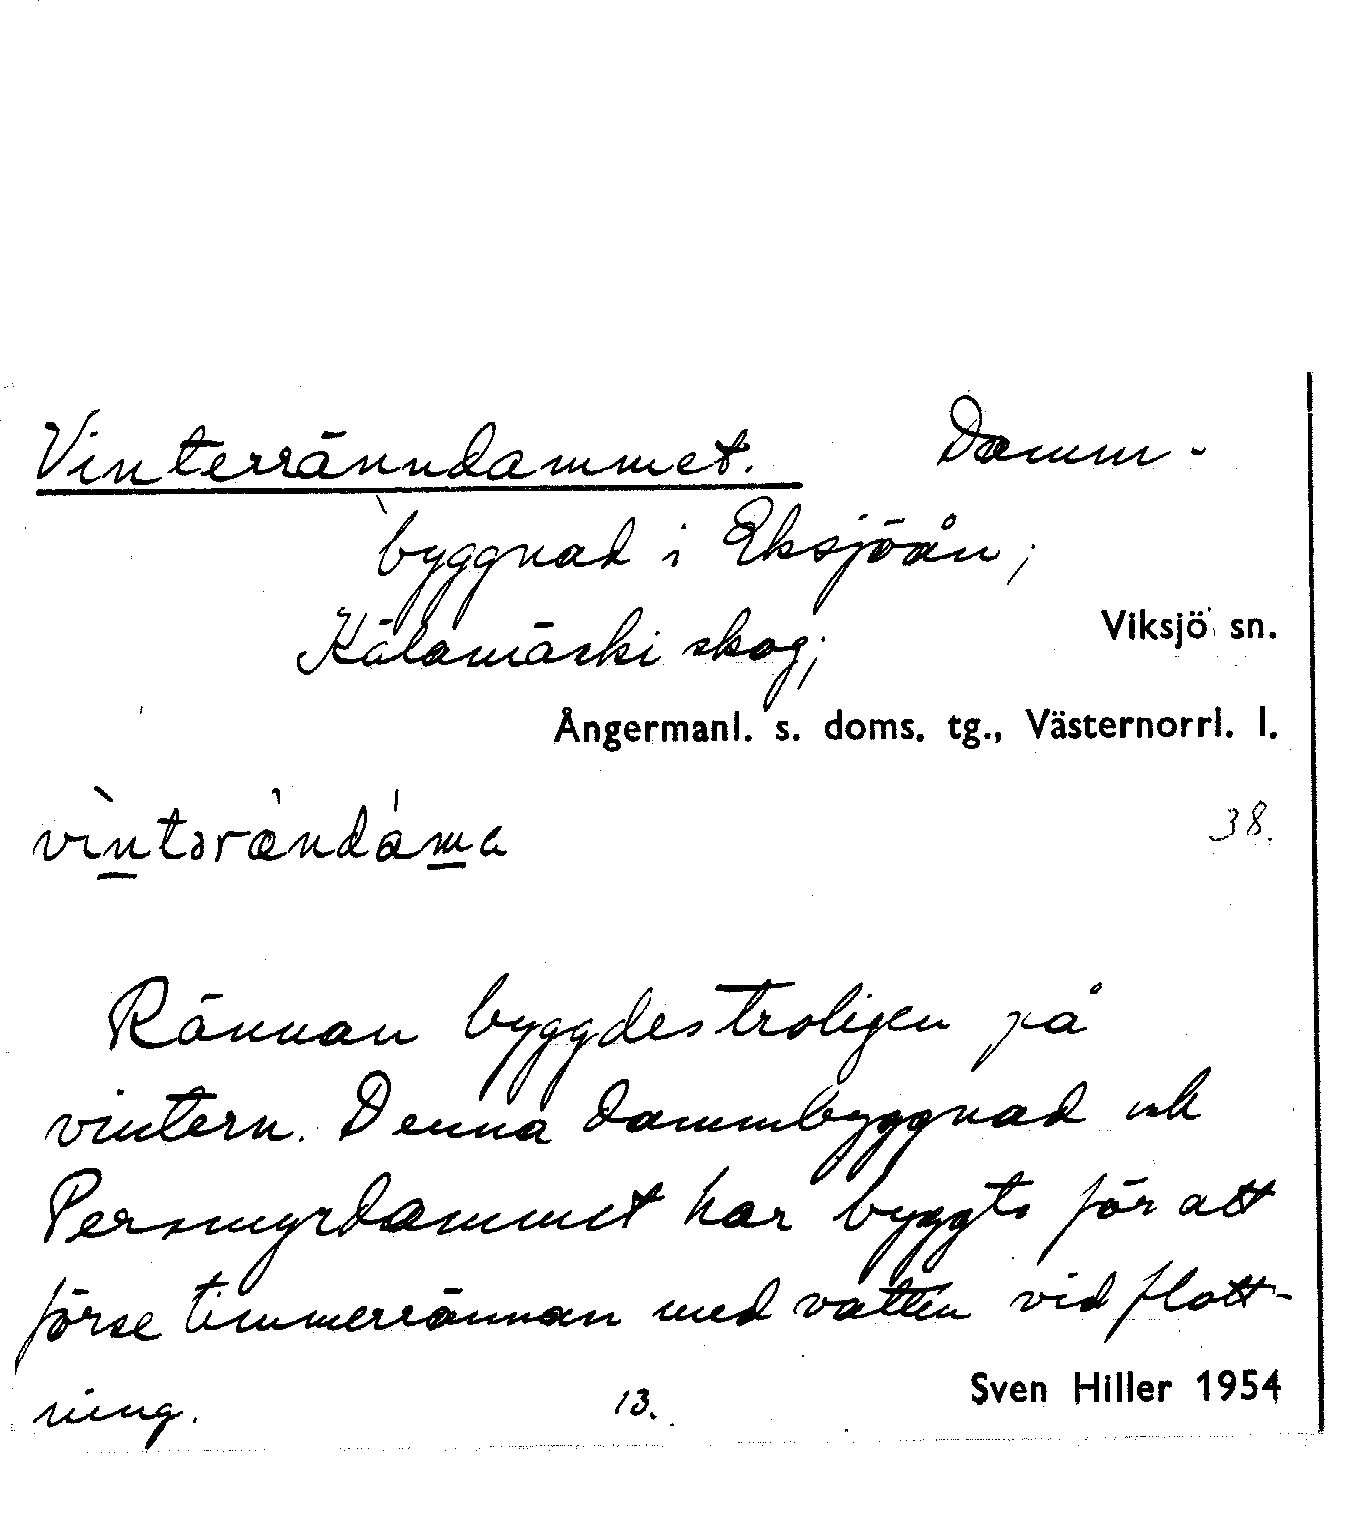 Vinterränndammet. Damm-
byggnad i Eksjöån;
Kälamärki skog; Viksjö sn.
Ångermanl. s. doms. tg., Västernorrl. l.
vìntərændáma 38.
Rännan byggdes troligen på
vintern. Denna dammbyggnad och
Persmyrdammet har byggts för att
förse timmerrännan med vatten vid flott-
ning. 13. Sven Hiller 1954